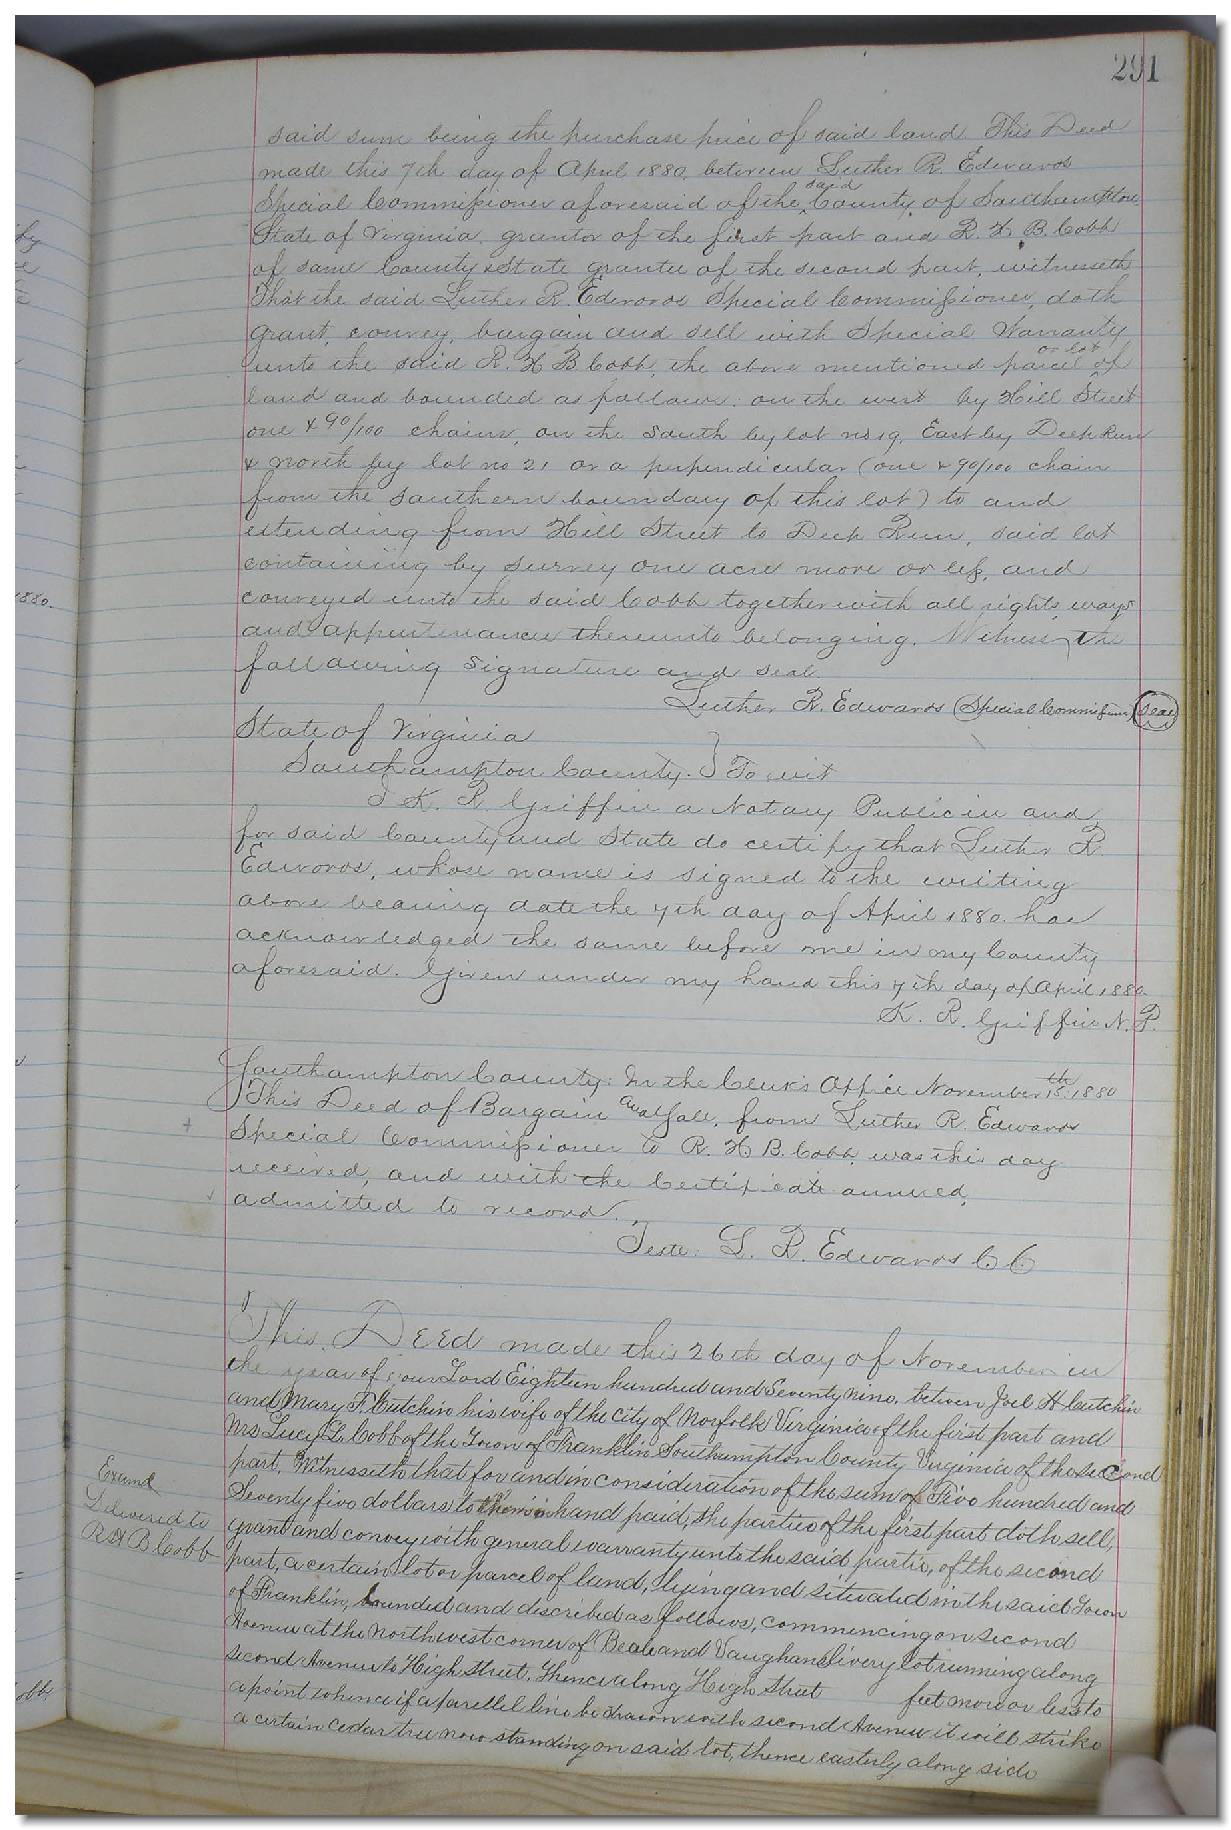 291
said sum being the purchase price of said land This Deed
made this 7th day of April 1880, between Luther R. Edwards
Special Commissioner aforesaid of the said County of Southampton
State of Virginia, grantor of the first part and R. H. B. Cobb
of same County & State grantee of the second part, witnesseth
That the said Luther R. Edwards Special Commissioner, doth
grant, convey, bargain and sell with Special Warranty
unto the said R. H B Cobb, the above mentioned parcel or lot of
land and bounded as follows: on the west by Hill Street
one & 90/100 chains, on the South by lot no 19, East by Deep Run
& north by lot no 21 or a perpendicular (one & 90/100 chain
from the southern boundary of this lot) to and
extending from Hill Street to Deep Run, said lot
containing by survey one acre more or less, and
conveyed unto the said Cobb together with all rights, ways
and appurtenances thereunto belonging. Witness the
following signature and seal
Luther R. Edwards (Special Commissioner) Seal
State of Virginia
Southampton County. } To wit
I K. R Griffin a Notary Public in and
for said County and State do certify that Luther R
Edwards, whose name is signed to the writing
above bearing date the 7th day of April 1880. has
acknowledged the same before me in my County
aforesaid. Given under my hand this 7th day of April 1880
K. R. Griffin N. P.
Southampton County: In the Clerk's Office November 15th, 1880
This Deed of Bargain and Sale, from Luther R. Edwards
Special Commissioner to R. H B. Cobb, was this day
received, and with the Certificate annexed,
admitted to record.
Teste: L. R. Edwards C C
This Deed made this 26th day of November in
the year of our Lord Eighteen hundred and Seventy nine, between Joel H Cutchin
and Mary F. Cutchin his wife of the City of Norfolk Virginia of the first part and
Mrs Lucy L. Cobb of the Town of Franklin Southampton County Virginia of the second
part, Witnesseth that for and in consideration of the sum of Five hundred and
Seventy five dollars to them in hand paid, the parties of the first part doth sell,
grant and convey with general warranty unto the said partie, of the second
part, a certain lot or parcel of land, lying and situated in the said Town
of Franklin, bounded and described as follows, commencing on second
Avenue at the northwest corner of Beale and Vaughans livery lot running along
second Avenue to High Street, Thence along High Street feet more or less to
a point whence if a parellel line be drawn with second Avenue it will strike
a certain cedar tree now standing on said lot, thence easterly along side
Examd
Delivered to
R H B Cobb
1880.